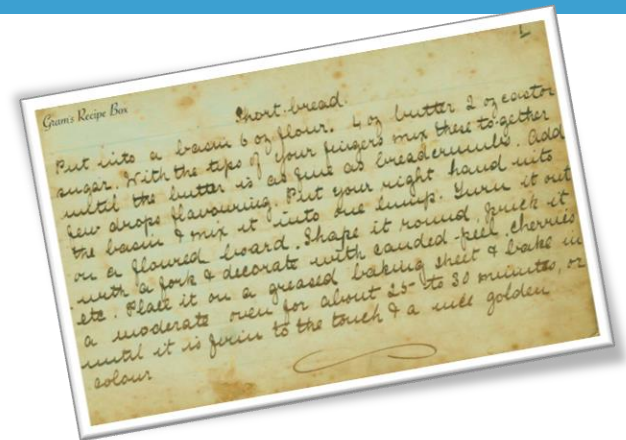 1
Gram's Recipe Box
Short-bread.
Put into a basin 6 oz flour. 4 oz butter 2 oz castor
sugar. With the tips of your fingers mix these together
until the butter is as fine as breadcrumbs. Add
few drops flavouring. Put your right hand into
the basin & mix it into one lump. Turn it out
on a floured board. Shape it round, prick it
with a fork & decorate with candied-peel, cherries
etc. Place it on a greased baking sheet & bake in
a moderate oven for about 25 to 30 minutes, or
until it is firm to the touch & a nice golden
colour